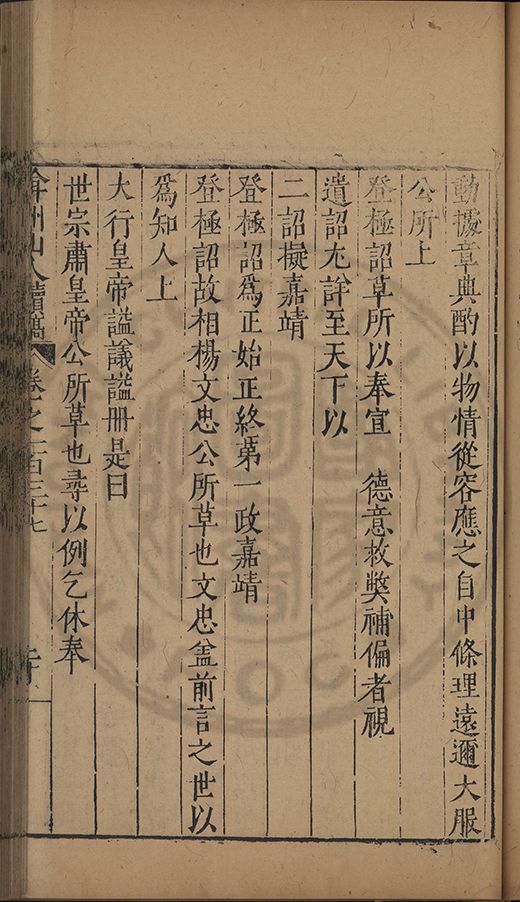 動據章典酌以物情從容應之自中條理遠邇大服
公所上
登極詔草所以奉宣　德意救獘補偏者視
遺詔尤詳至天下以
二詔擬嘉靖
登極詔爲正始正終第一政嘉靖
登極詔故相楊文忠公所草也文忠盖前言之世以
爲知人上
大行皇帝謚議謚册是日
世宗肅皇帝公所草也尋以例乞休奉
弇州山人續稿　卷之一百三十七